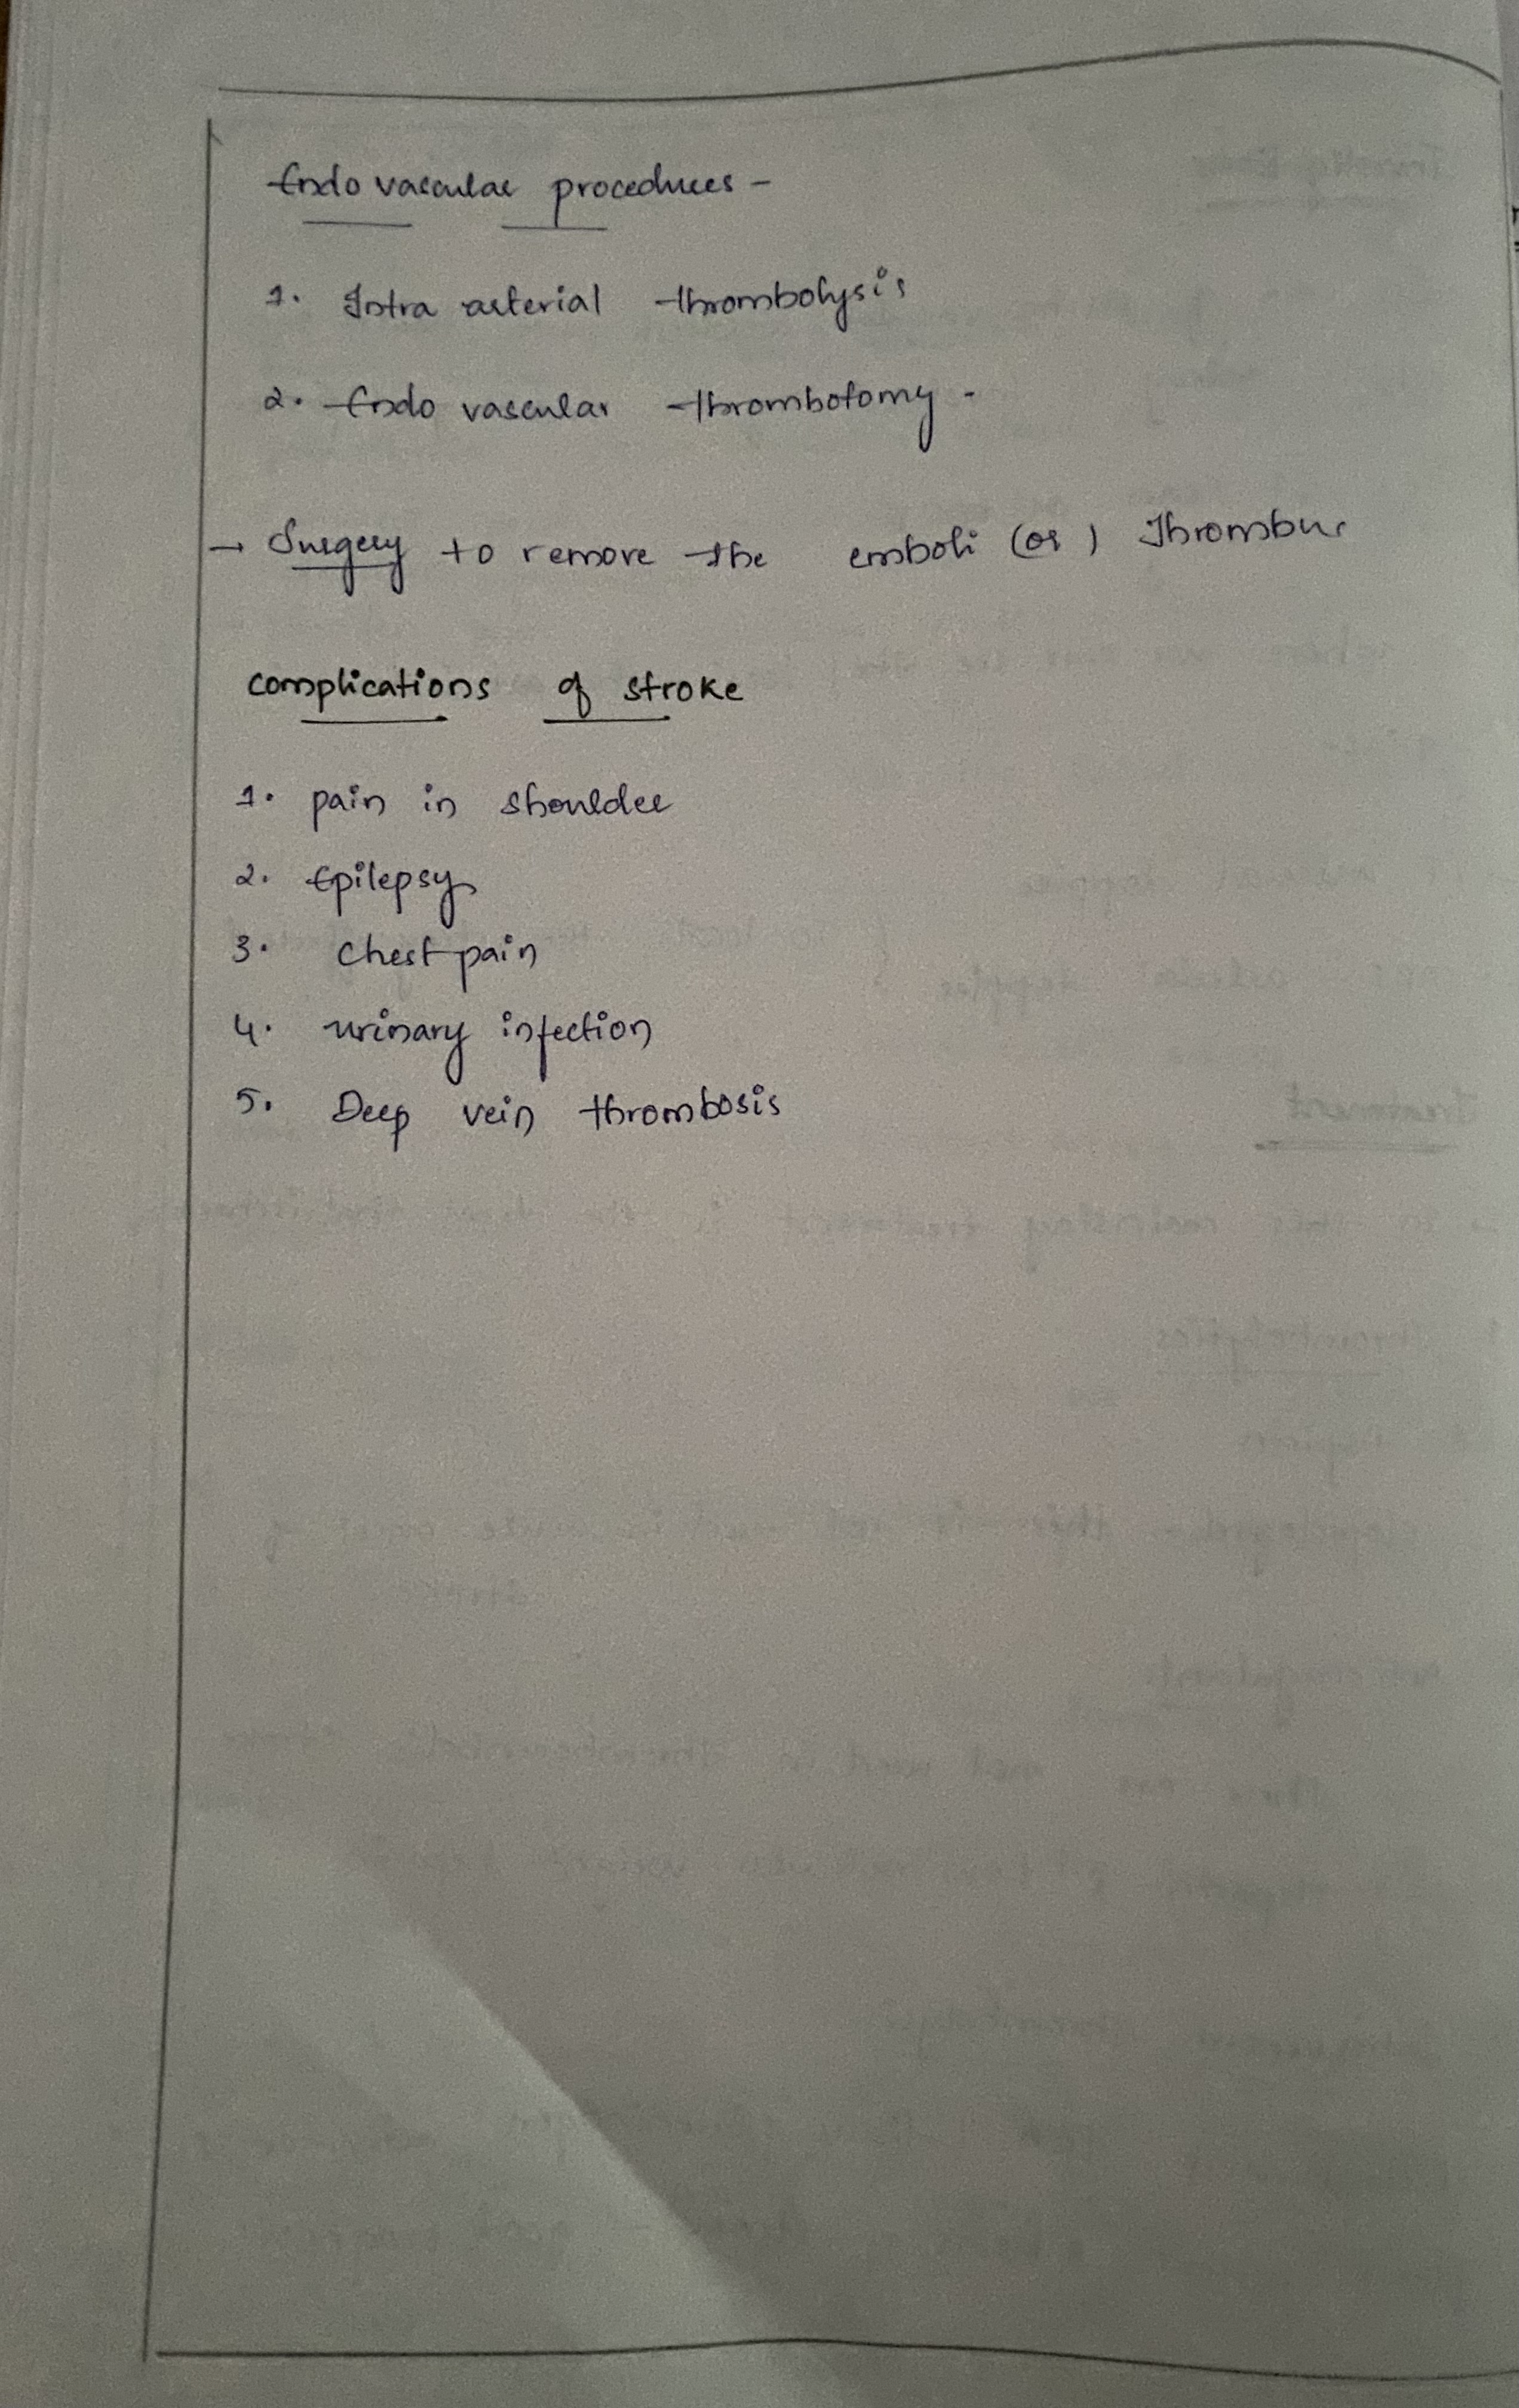 Endo vascular procedures -
1. Intra arterial thrombolysis
2. Endo vascular thrombotomy .
→ Surgery to remove the emboli (or) Thrombus
complications of stroke
1. pain in shoulder
2. Epilepsy
3. Chest pain
4. urinary infection
5. Deep vein thrombosis